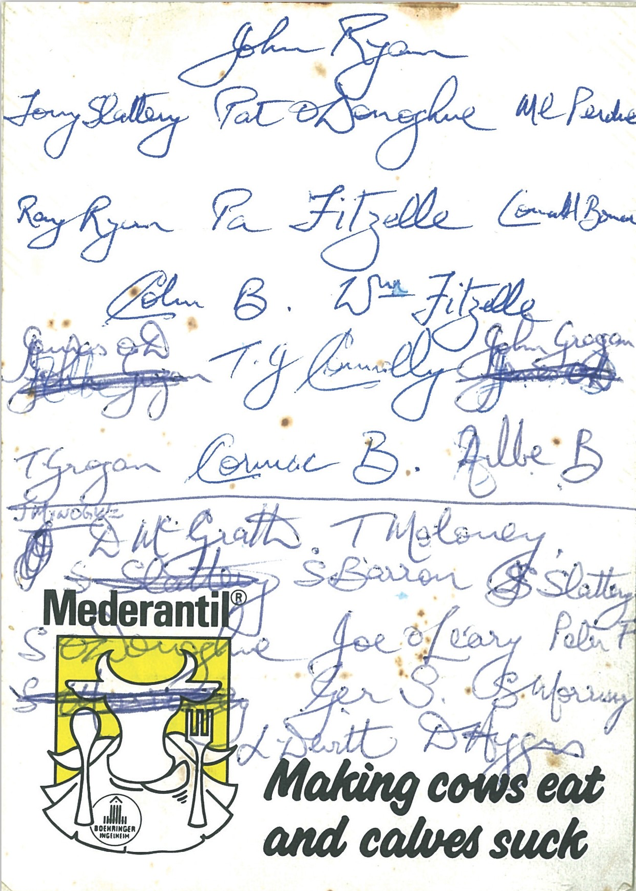 John Ryan
Tony Slattery Pat O Donoghue Ml Perdue
Ray Ryan Pa Fitzelle Conall Bonnar
Colm B. Wm Fitzelle
Seamas O D T.J Connolly John Grogan
T Grogan Cormac B. Ailbe B
D McGrath T Moloney
S Slattery S Barron S Slattery
Mederantil®
S O Donoghue Joe O'Leary Peter F
Ger S. S Morrissey
L Devitt D Hyggs
Making cows eat
and calves suck
BOEHRINGER
INGELHEIM